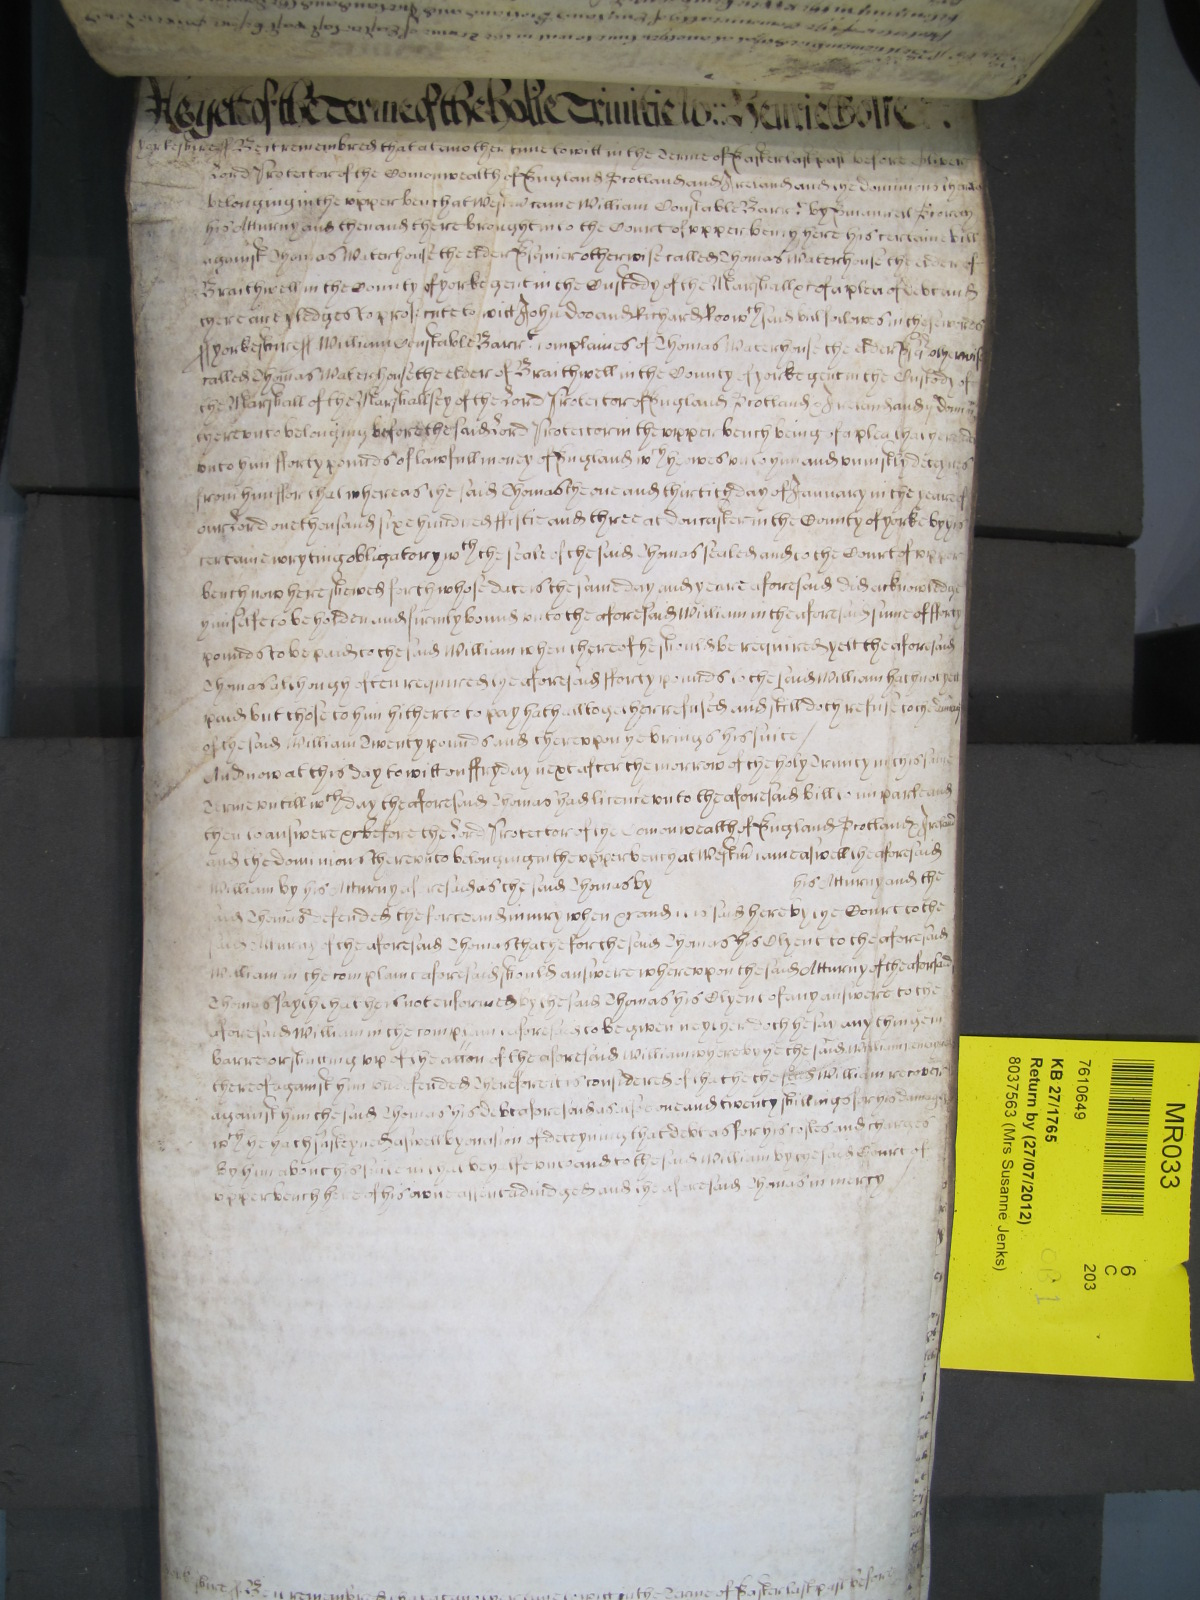 As yett of the Terme of the holie Trinitie Henrie Rolle
Yorkeshire ss Be it remembred that at another time to witt in the Terme of Easter last past before Oliver
Lord Protector of the Comonwealth of England Scotland and Ireland and the dominions thereto
belonging in the upper bench at Westm came William Constable Barrt by Emanuell
his Atturny and then and there brought into the Court of upper bench here his certaine bill
against Thomas Waterhouse the elder Esq otherwise called Thomas Waterhouse the elder of
Braithwell in the County of yorke gent in the Custody of the Marshall &c of a plea of debt and
there are pledges to prosecute to witt John Doo and Richard Roo wch said bill followes in these wordes
ss yorkeshire ss William Constable Barrt complaines of Thomas Waterhouse the elder Esqr otherwise
called Thomas Waterhouse the elder of Braithwell in the County of yorke gent in the Custody of
the Marshall of the Marshallsey of the Lord Protector of England Scotland & Ireland and ye domin
thereunto belonging before the said Lord Protector in the upper bench being of a plea that he render
unto him fforty pounds of lawfull money of England wch he owes unto him and uniustly deteynes
from him ffor that whereas the said Thomas the one and thirtith day of January in the yeare of
our Lord one thousand six hundred ffiftie and three at Doncaster in the County of yorke by his
certaine wryting obligatory wth the seale of the said Thomas sealed and to the Court of upper
bench now here shewed forth whose date is the same day and yeare aforesaid did acknowledge
himselfe to be holden and firmly bound unto the aforesaid William in the aforesaid sume of fforty
pounds to be paid to the said William when thereof he should be required yett the aforesaid
Thomas although often required the aforesaid fforty pounds to the said William hath not yett
paid but those to him hitherto to pay hath alltogether refused and still doth refuse to the damage
of the said William Twenty pounds and thereupon he brings his suite /
And now at this day to witt on ffryday next after the morrow of the holy Trinity in this same
Terme untill wch day the aforesaid Thomas had licence unto the aforesaid bill to imparle and
then to answere &c before the Lord Protector of the Comonwealth of England Scotland & Ireland
and the dominions thereunto belonging in the upper bench at Westm came aswell the aforesaid
William by his Atturny aforesaid as the said Thomas by his Atturny and the
said Thomas defended the force and iniury when &c and it is said here by the Court to the
said Atturny of the aforesaid Thomas that he for the said Thomas his Clyent to the aforesaid
William in the complaint aforesaid should answere whereupon the said Atturny of the aforsaid
Thomas sayth that he is not enformed by the said Thomas his Clyent of any answere to the
aforesaid William in the complaint aforesaid to be given neyther doth he say any thinge in
barre or shutting up of the action of the aforesaid William whereby he the said William remaines
thereof against him undefended Therefore it is considered of that he the said William recover
against him the said Thomas his debt aforesaid as alsoe one and twenty shillings for his damages
wch he hath susteyned aswell by occasion of deteyning that debt as for his costes and charges
by him about his suite in that behalfe unto and to the said William by the said Court of
upper bench here of his owne assent adiudged and the aforesaid Thomas in mercy
Be it remembred that at another time to witt in the Terme of Easter last past before
MR033
6
C
203
7610649
KB 27/1765
Return by (27/07/2012)
8037563 (Mrs Susanne Jenks)
CB 1